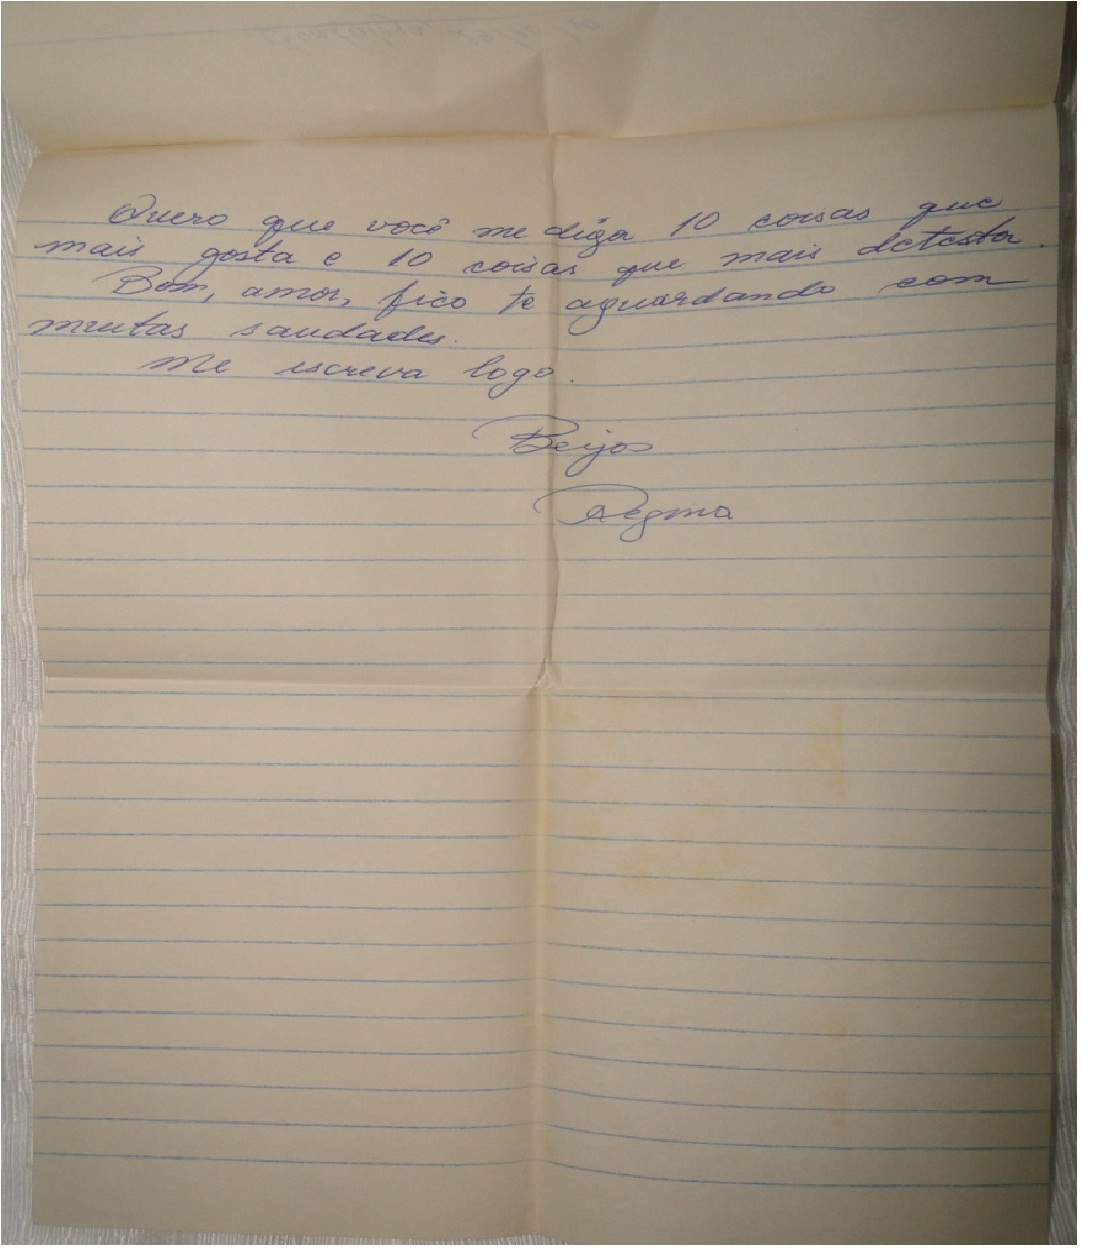 Quero que você me diga 10 coisas que
mais gosta e 10 coisas que mais detesta.
Bom, amor, fico te aguardando com
muitas saudades.
Me escreva logo.
Beijos
Regina